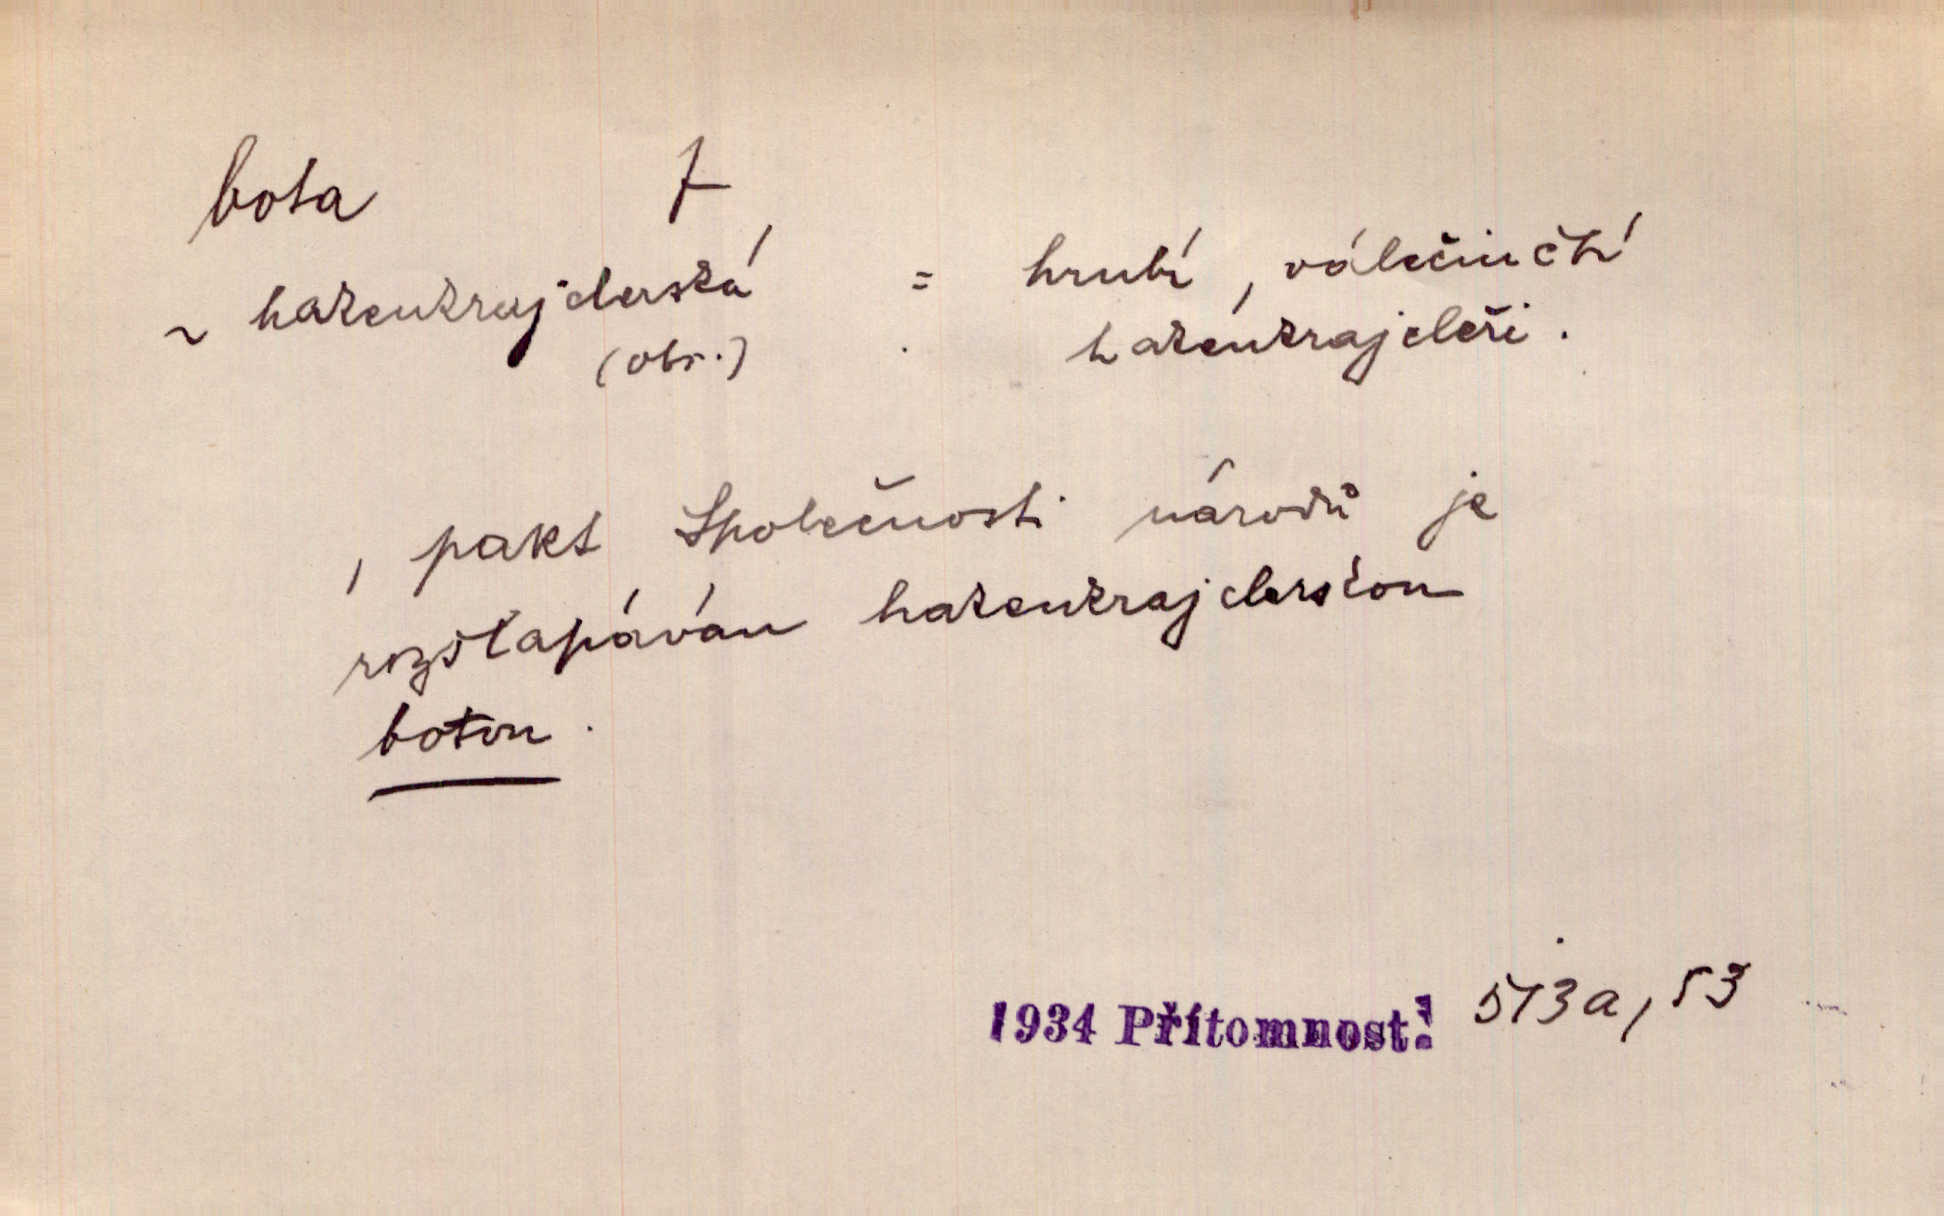 bota f
~ hakenkrajclerská = hrubí, válečničtí
(obr.) hakenkrajcleři.
, pakt Společnosti národů je
rozšlapáván hakenkrajclerskou
botou.
1934 Přítomnost: 513a, 53